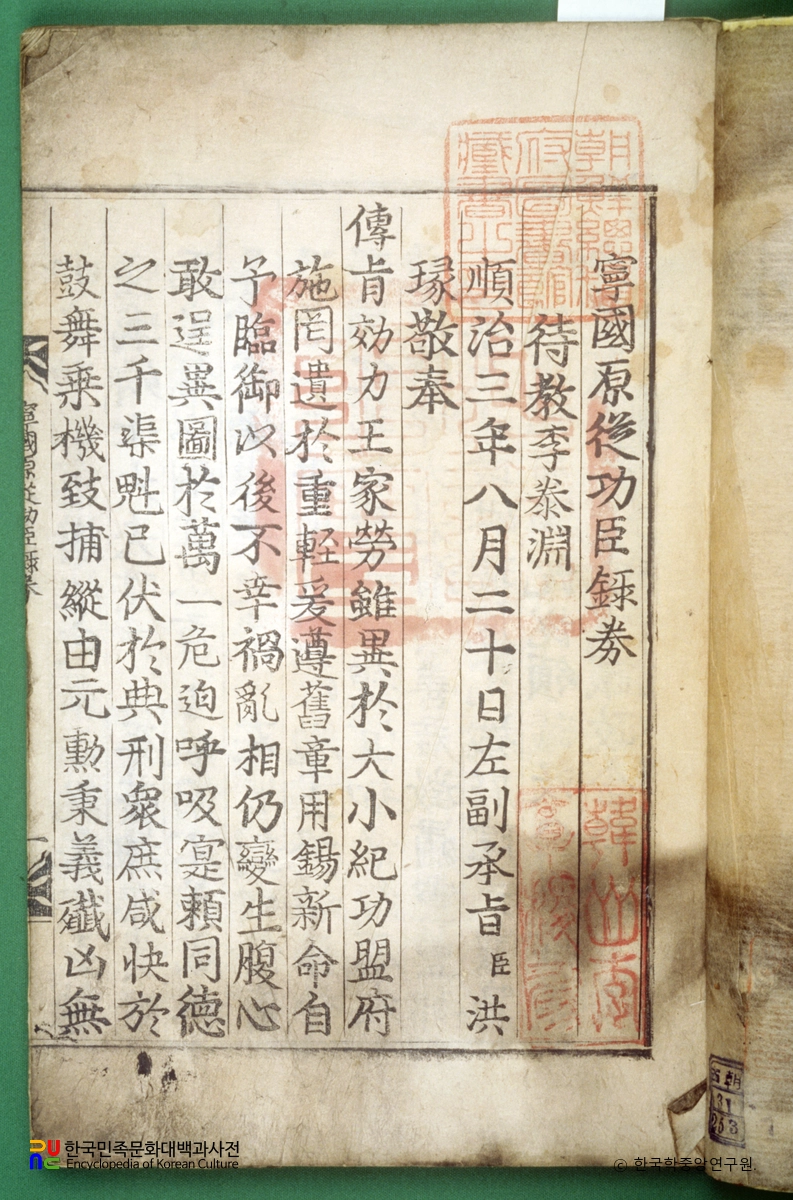 寧國原從功臣錄券
待敎李泰淵
順治三年八月二十日左副承旨臣洪
瑑敬奉
傳旨効力王家勞雖異於大小紀功盟府
施罔遺於重輕爰遵舊章用錫新命自
予臨御以後不幸禍亂相仍變生腹心
敢逞異圖於萬一危迫呼吸寔賴同德
之三千渠魁已伏於典刑衆庶咸快於
鼓舞乗機致捕縱由元勳秉義殱凶無
寧國原從功臣錄券
朝鮮總督府圖書館藏書之印
한국민족문화대백과사전
Encyclopedia of Korean Culture
© 한국학중앙연구원